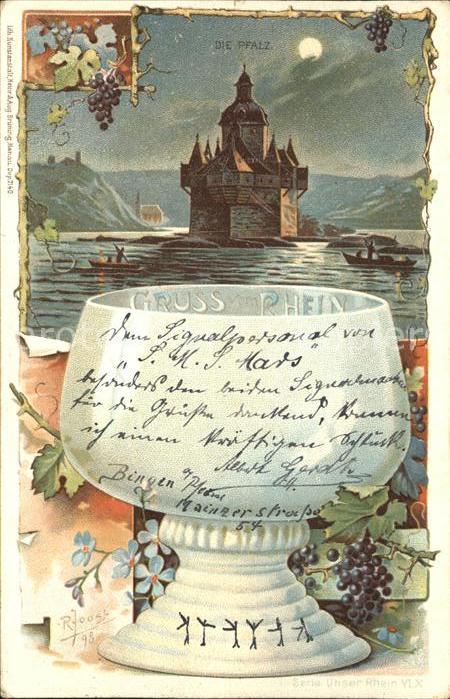 DIE PFALZ.
GRUSS vom RHEIN
Dem Signalpersonal von
"S. M. S. Mars"
besonders den beiden
für die Grüße dankend,
ich einen kräftigen Schluck.
Albert
Bingen a/Rhein
Mainzer Strasse
54
R. Joost
98
Serie Unser Rhein VI. X
Lith. Kunstanstalt, Heinr. & Aug. Brüning, Hanau.